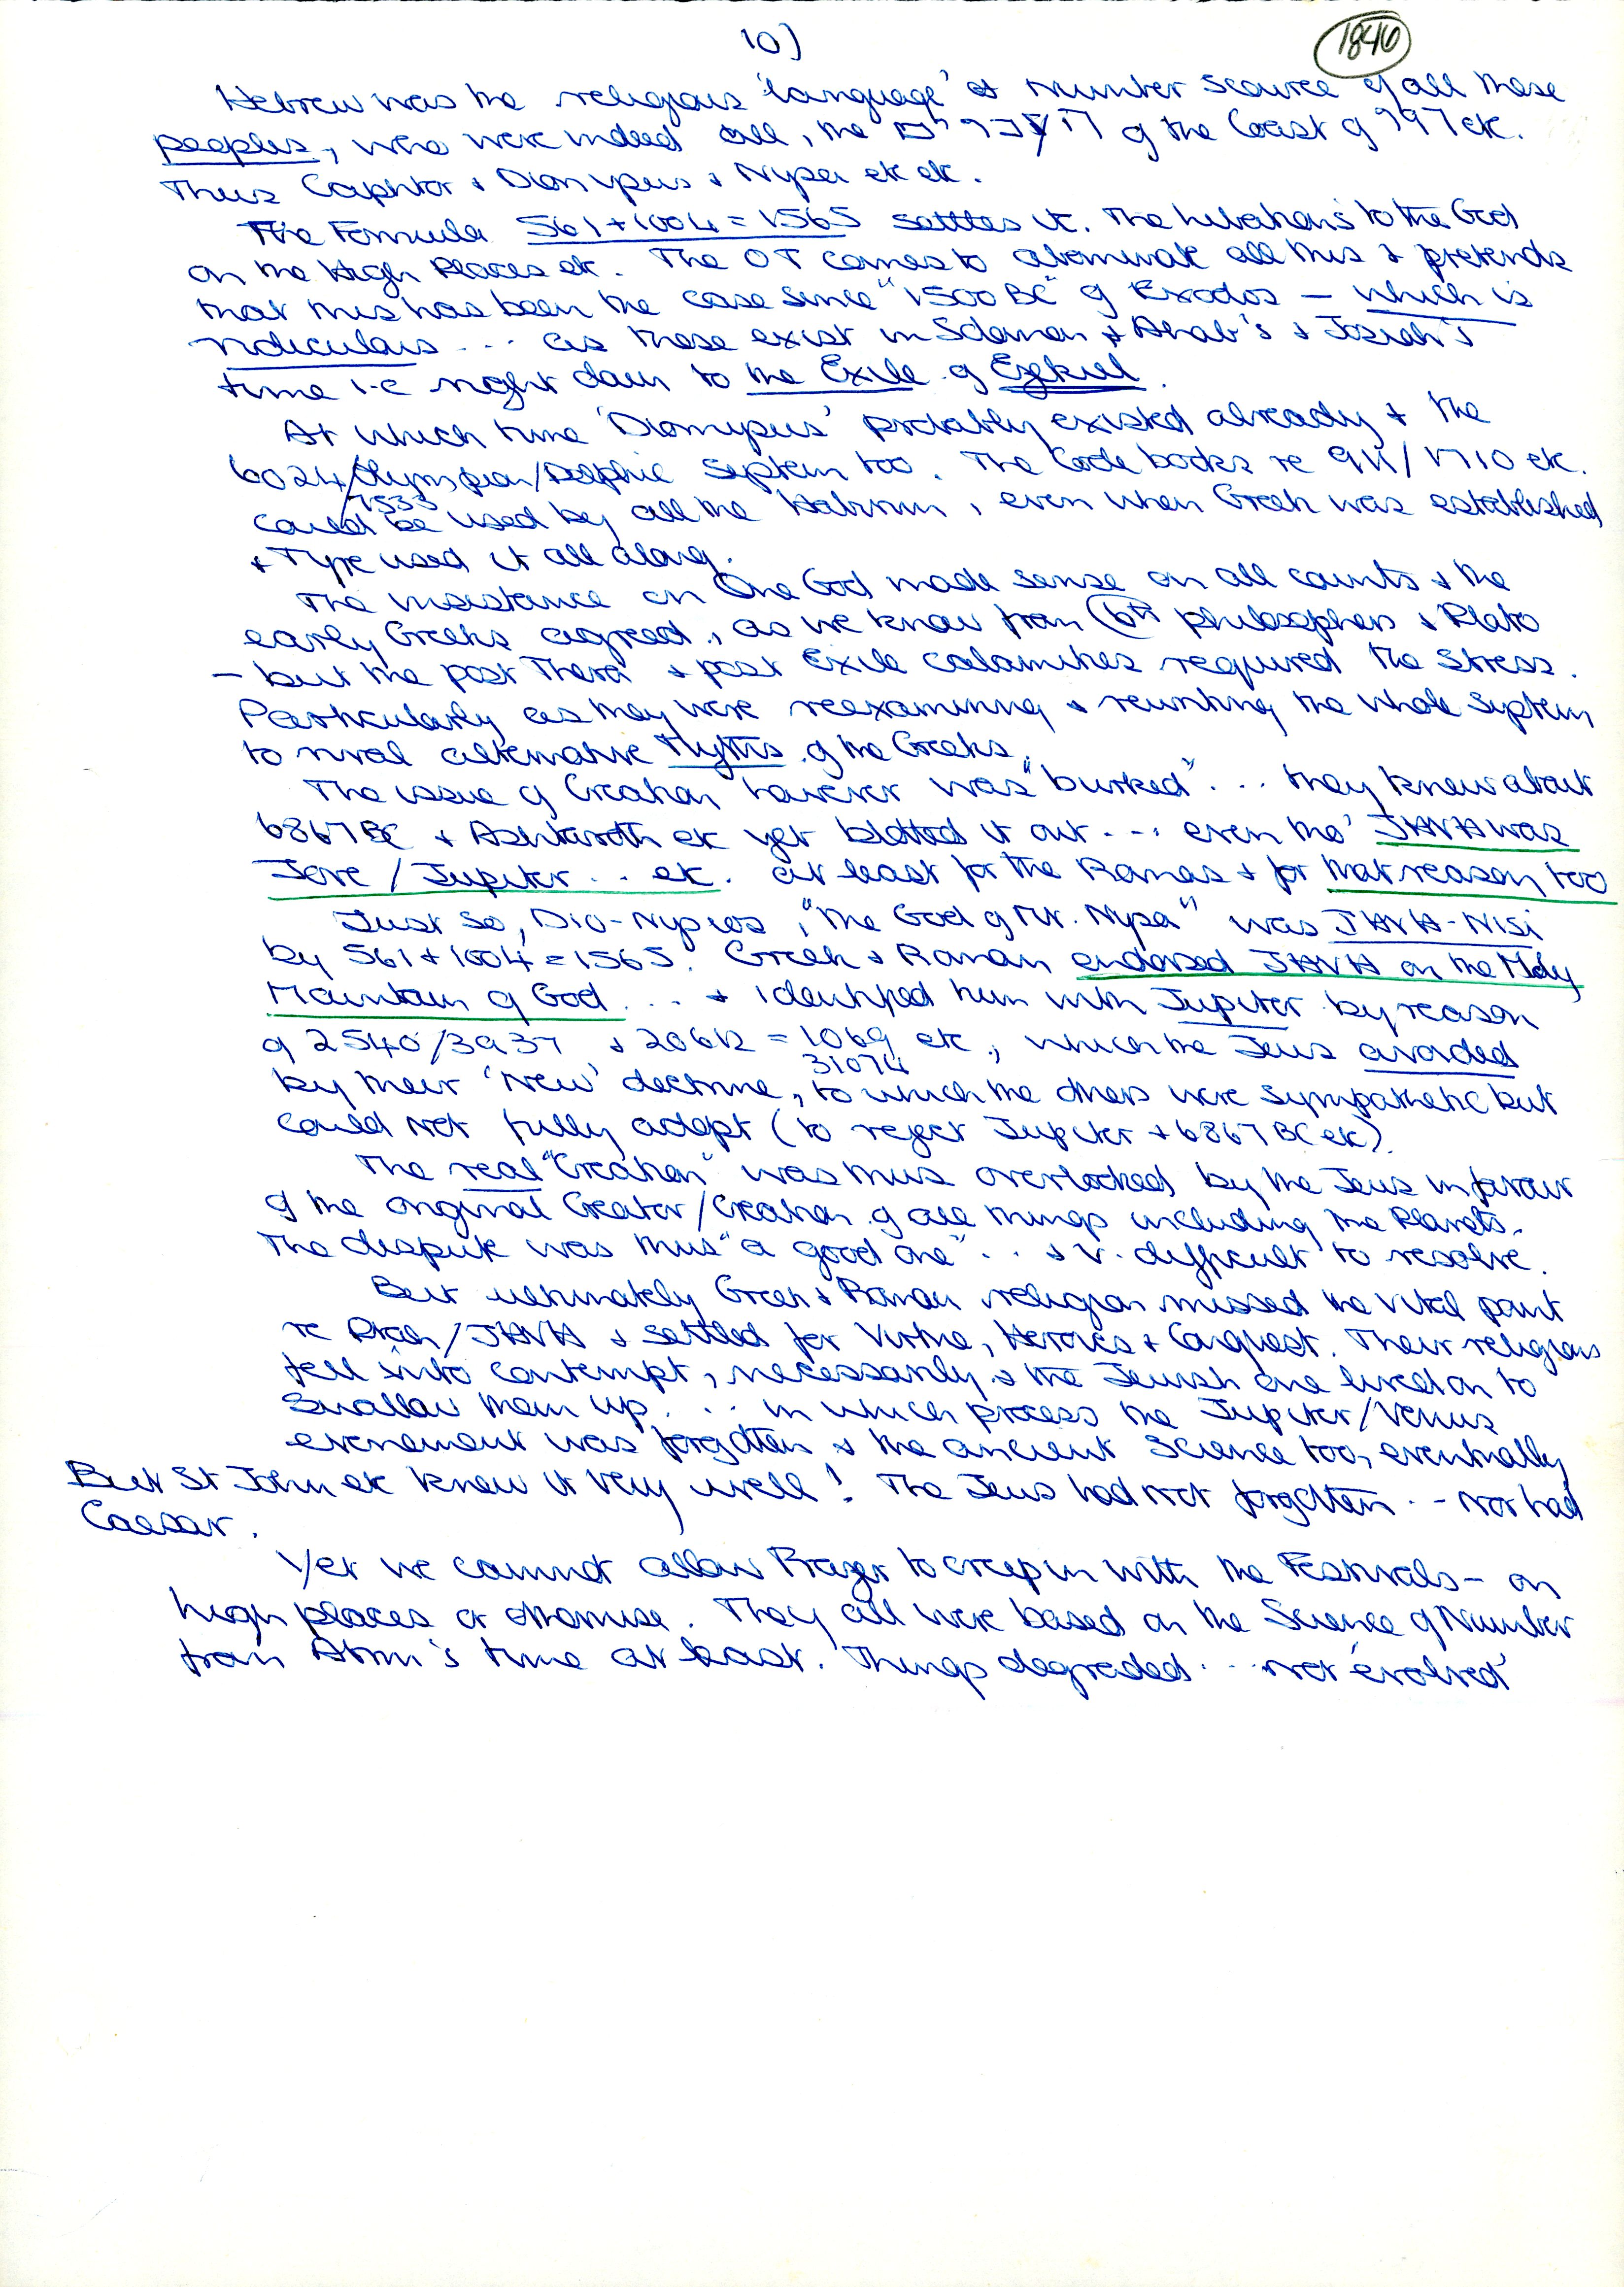 10)
1846
Hebrew was the religious 'language' & Number Source of all these
peoples, who were indeed all, the of the Coast of etc.
Thus Caphtor & Dionysus & Nysa etc etc.
The Formula 561+1004=1565 settles it. The libations to the God
on the High Places etc. The OT comes to abominate all this & pretends
that this has been the case since "1500 BC" of Exodos – which is
ridiculous ... as these exist in Soloman & Ahab's & Josiah's
time i-e right down to the Exile of Ezekiel.
At which time 'Dionysus' probably existed already & the
6024/Olympian/Delphic System too. The Code books re 911/1710 etc.
1533
could be used by all the , even when Greek was established
& Tyre used it all along.
The insistance on One God made sense on all counts & the
early Greeks agreed, as we know from 6th philosophers & Plato
– but the post Thera & post Exile calamities required the Stress.
Particularly as they were reexamining & rewriting the whole System
to rival alternative Myths of the Greeks.
The issue of Creation however was "burked" ... they knew about
6867 BC & Ashtaroth etc yet blotted it out ... even tho' JAVA was
Jove / Jupiter .. etc. at least for the Romas & for that reason too
Just so, Dio-Nysos, "the God of Mt. Nysa" was JAVA-NISi
by 561+1004=1565. Greek & Roman endorsed JAVA on the Holy
Mountain of God ... & identified him with Jupiter by reason
of 2540/3937 & 20612 = 1069 etc., which the Jews avoided
31074
by their 'New' doctrine, to which the others were sympathetic but
could not fully adopt (to reject Jupiter & 6867 BC etc).
The real "Creation" was thus overlooked by the Jews in favour
of the original Creator/Creation of all things including the Planets.
The dispute was thus "a good one" .. & v. difficult to resolve.
But ultimately Greek & Roman religion missed the vital point
re /JAVA & settled for Virtue, Heroics & Conquest. Their religions
fell into contempt, necessarily & the Jewish one lived on to
swallow them up ... in which process the Jupiter/Venus
evenement was forgotten & the ancient Science too, eventually
But St John etc knew it very well! The Jews had not forgotten .- nor had
Caesar.
Yet we cannot allow Frazer to creep in with the Festivals – on
high places or otherwise. They all were based on the Science of Number
from 's time at least. Things degraded ... not 'evolved'